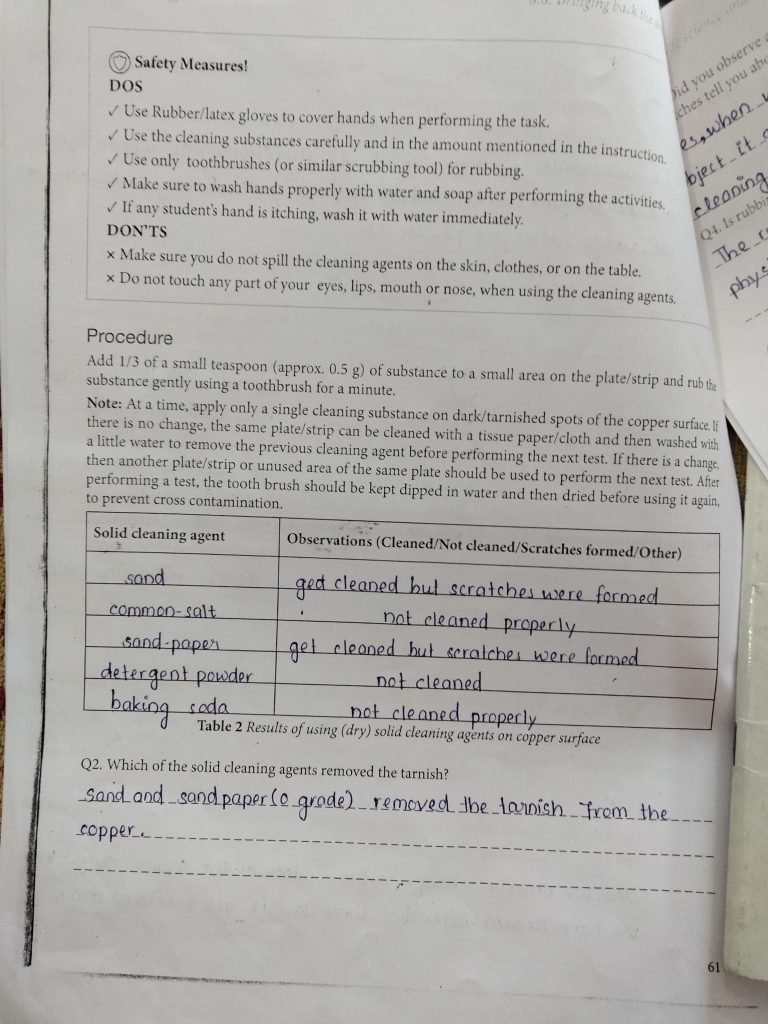 Bringing back the
Safety Measures!
DOS
✓ Use Rubber/latex gloves to cover hands when performing the task.
✓ Use the cleaning substances carefully and in the amount mentioned in the instruction.
✓ Use only toothbrushes (or similar scrubbing tool) for rubbing.
✓ Make sure to wash hands properly with water and soap after performing the activities.
✓ If any student's hand is itching, wash it with water immediately.
DON'TS
× Make sure you do not spill the cleaning agents on the skin, clothes, or on the table.
× Do not touch any part of your eyes, lips, mouth or nose, when using the cleaning agents.
Procedure
Add 1/3 of a small teaspoon (approx. 0.5 g) of substance to a small area on the plate/strip and rub the
substance gently using a toothbrush for a minute.
Note: At a time, apply only a single cleaning substance on dark/tarnished spots of the copper surface. If
there is no change, the same plate/strip can be cleaned with a tissue paper/cloth and then washed with
a little water to remove the previous cleaning agent before performing the next test. If there is a change,
then another plate/strip or unused area of the same plate should be used to perform the next test. After
performing a test, the tooth brush should be kept dipped in water and then dried before using it again,
to prevent cross contamination.
Solid cleaning agent Observations (Cleaned/Not cleaned/Scratches formed/Other)
sand ged cleaned but scratches were formed
common-salt not cleaned properly
sand-paper get cleaned but scratches were formed
detergent powder not cleaned
baking soda not cleaned properly
Table 2 Results of using (dry) solid cleaning agents on copper surface
Q2. Which of the solid cleaning agents removed the tarnish?
sand and sandpaper(0 grade) removed the tarnish from the
copper.
61
Did you observe
ches tell you
es, when
bject it
cleaning
Q4. Is
The